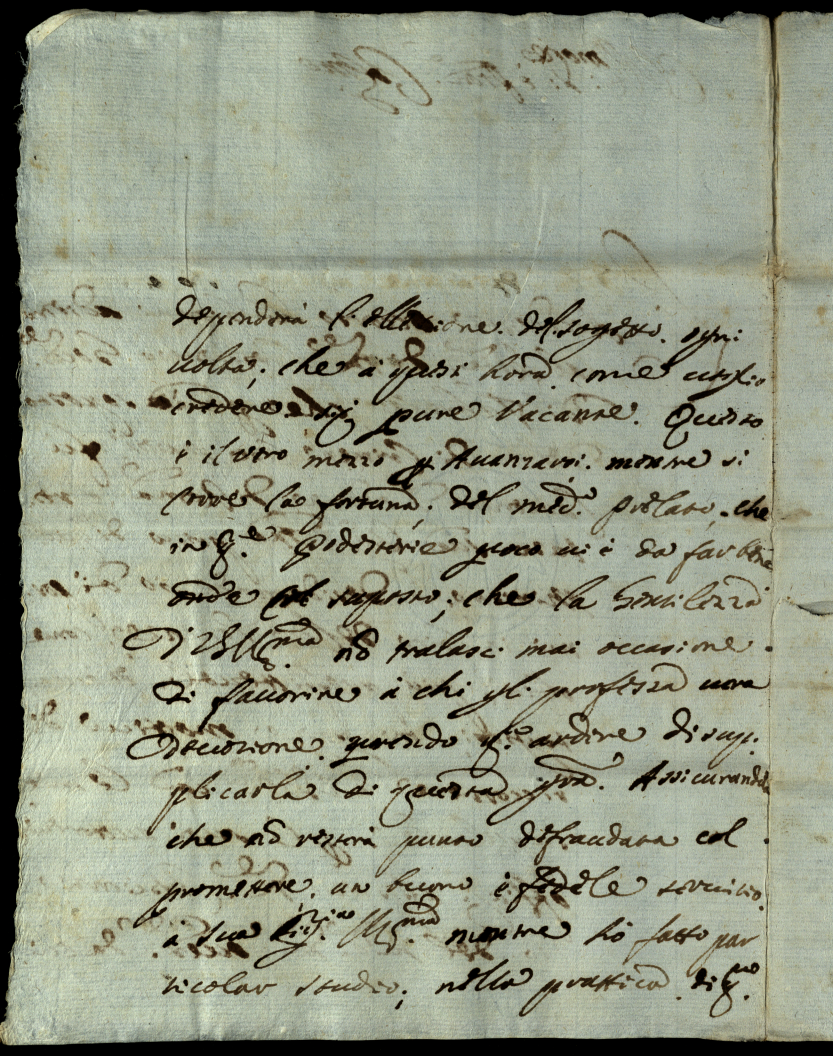 dependerà l'ellettione. del sogetto. ogni
uolta; che à quest hora come uoglio
credere. sij pure Vacante. Questo
è il uero mezzo p Auanzarsi. mentre si
troue la fortuna; del med.º prelato, che
in q.e Podesterie puoco ui è da far bene
onde col suposto; che la Gentilezza
Di VS Ill.ma nõ tralasci mai occasione.
di fauorire à chi gli professa uera
Deuozione. prendo q.º ardire di sup.
plicarla di questa gra. Assicurandola
che nõ resterà punto defraudata col
promettere. un buono è fedele seruitio.
à sua Ill.ma mentre hò fatto par
ticolar studio; nella prattica di q.